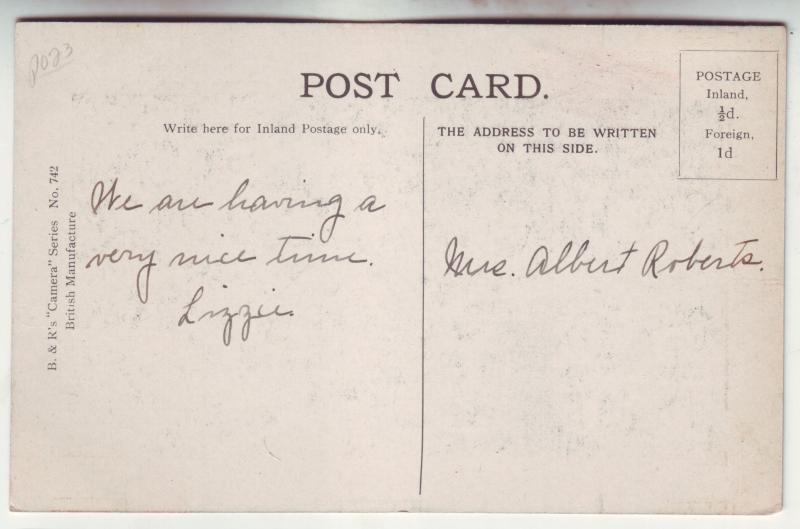 2023
POST CARD.
Write here for Inland Postage only.
THE ADDRESS TO BE WRITTEN
ON THIS SIDE.
POSTAGE
Inland,
½d.
Foreign,
1d
B. & R's "Camera" Series No. 742
British Manufacture
We are having a
very nice time.
Lizzie.
Mrs. Albert Roberts.